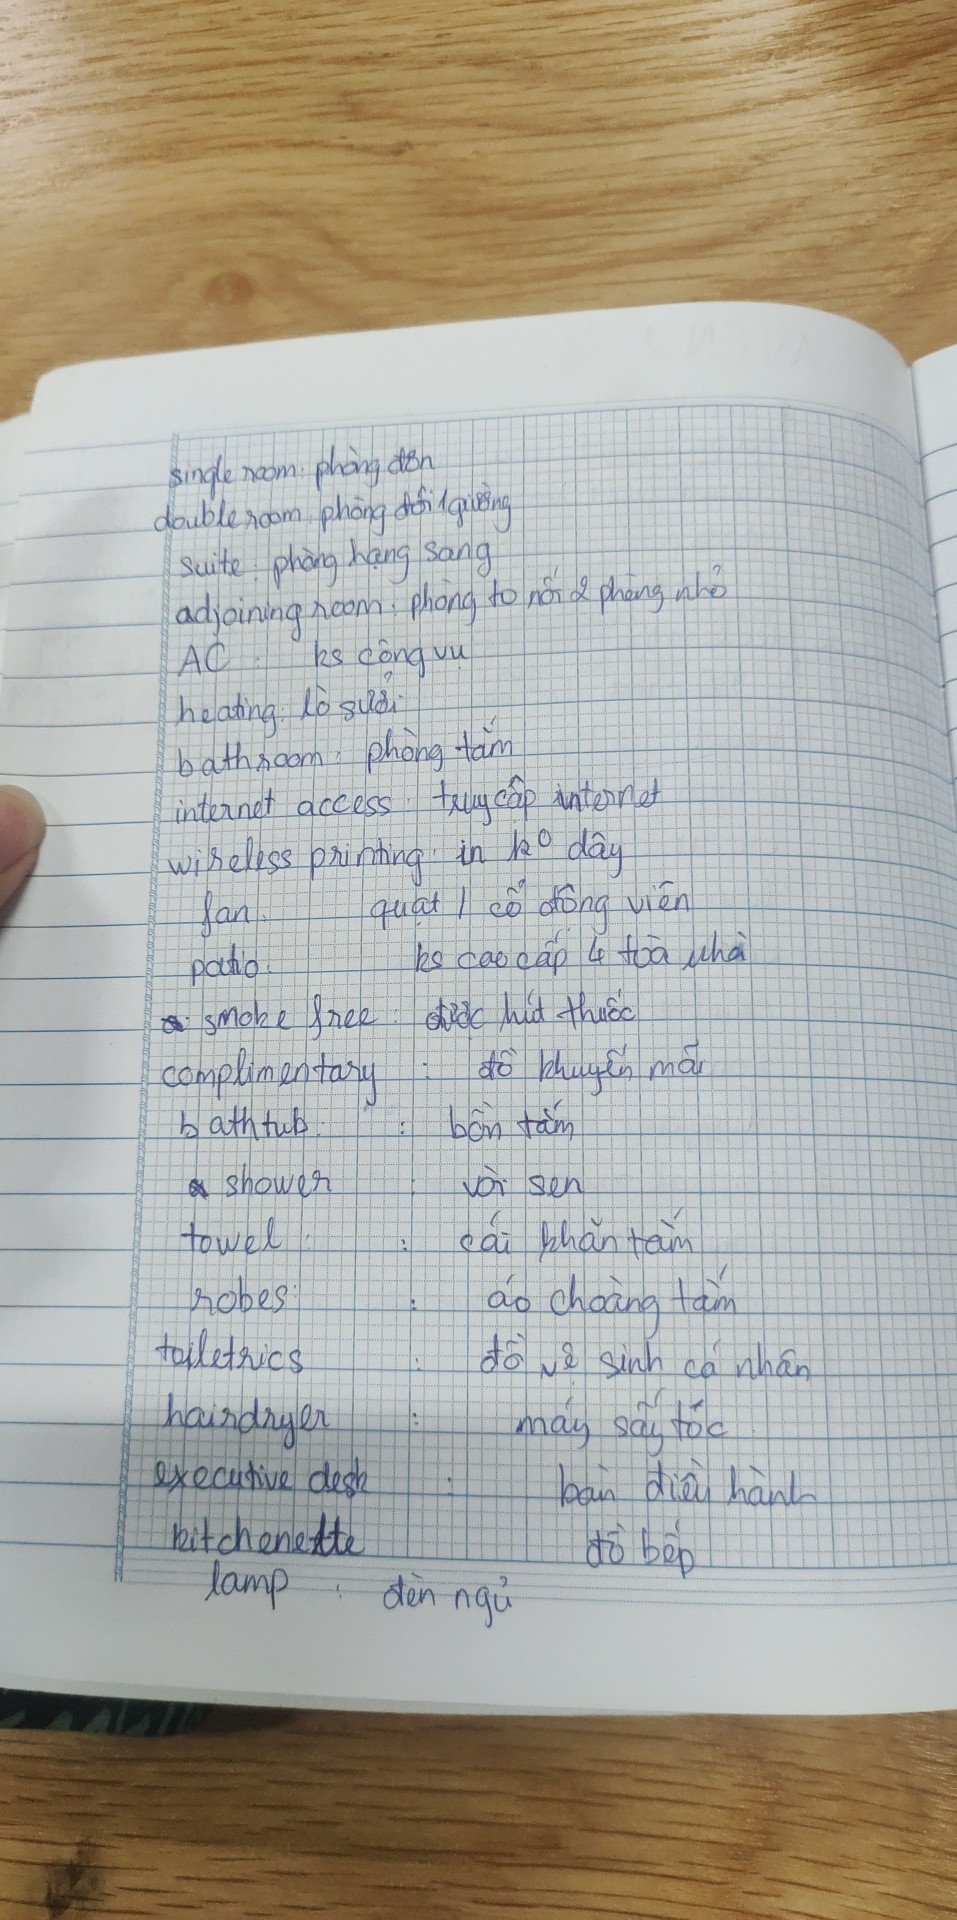 single room: phòng đơn
double room: phòng đôi 1 giường
suite: phòng hạng sang
adjoining room: phòng to nối 2 phòng nhỏ
AC: ks công vụ
heating: lò sưởi
bathroom: phòng tắm
internet access: truy cập internet
wireless printing: in ko dây
fan: quạt / cổ động viên
patio: ks cao cấp 4 tòa nhà
smoke free: được hút thuốc
complimentary: đồ khuyến mãi
bathtub: bồn tắm
shower: vòi sen
towel: cái khăn tắm
robes: áo choàng tắm
toiletrics: đồ vệ sinh cá nhân
hairdryer: máy sấy tóc
executive desk: bàn điều hành
kitchenette đồ bếp
lamp: đèn ngủ